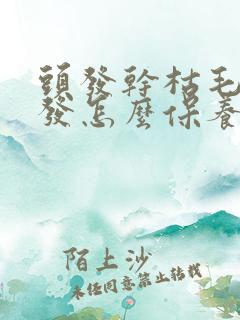 頭發幹枯毛
發怎麼保養
陌上沙
未任同意禁止轉載